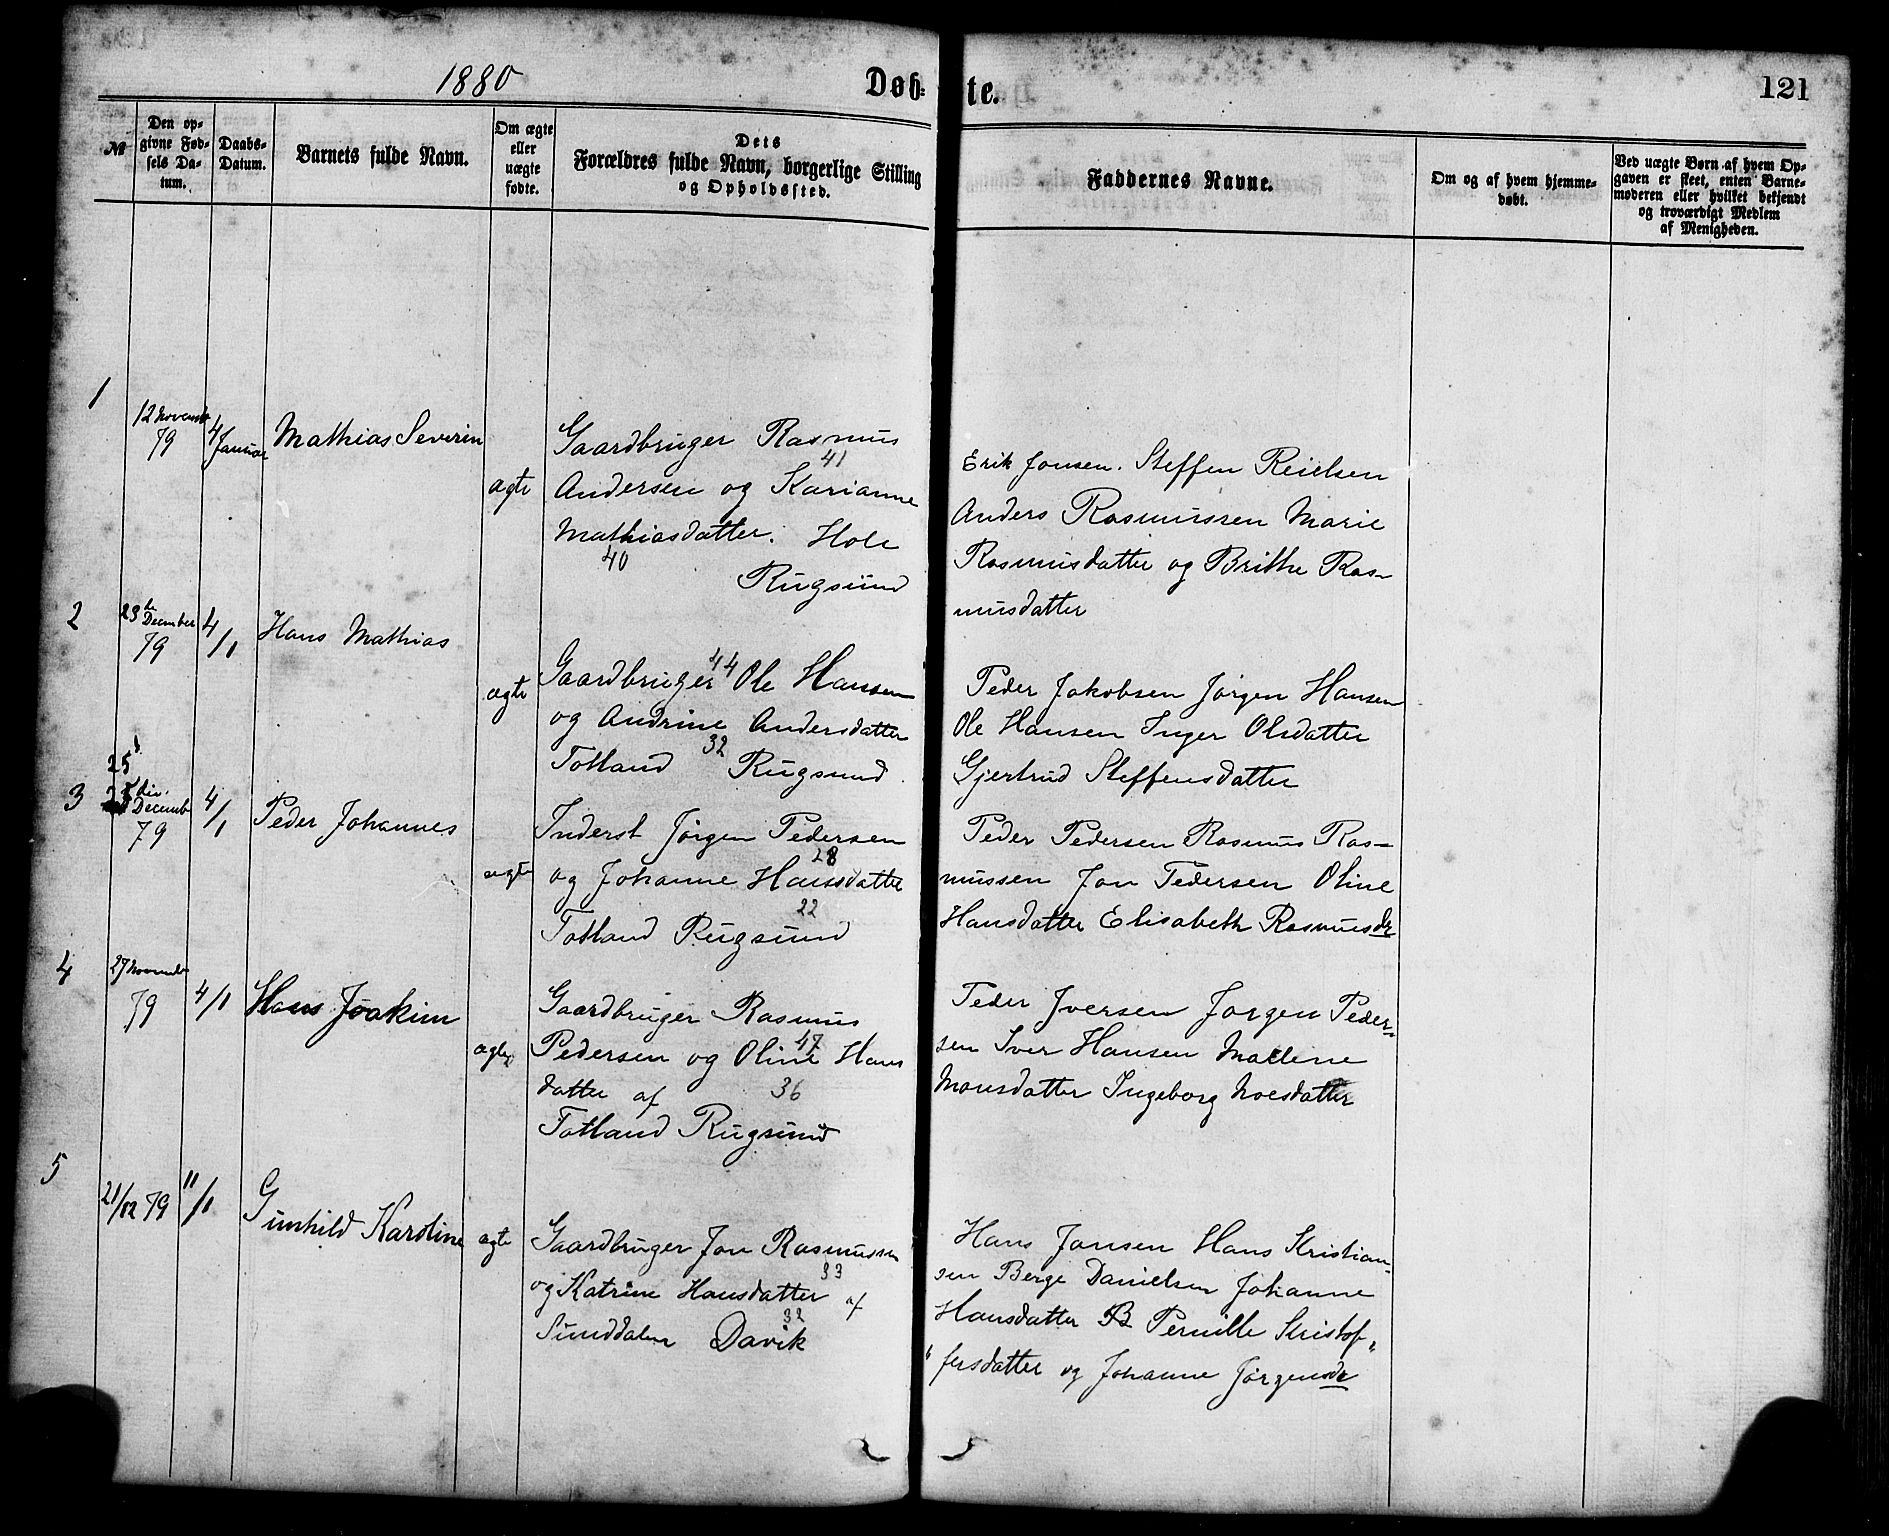 1880
Døb-te.
121
№
Den op-
givne Fød-
sels Da-
tum.
Daabs-
Datum.
Barnets fulde Navn.
Om ægte
eller
uægte
fødte.
Dets
Forældres fulde Navn, borgerlige Stilling
og Opholdssted.
Faddernes Navne.
Om og af hvem hjemme-
døbt.
Ved uægte Børn af hvem Op-
gaven er skeet, enten Barne-
moderen eller hvilket bekjendt
og troværdigt Medlem
af Menigheden.
1
12 novemb
79
4
Januar
Mathias Severin
ægte
Gaardbruger Rasmus
41
Andersen og Karianne
Mathiasdatter. Hole
40
Rugsund
Erik Jonsen. Steffen Reielsen
Anders Rasmussen Marie
Rasmusdatter og Brithe Ras-
musdatter
2
23de
December
79
4/1
Hans Mathias
ægte
44
Gaardbruger Ole Hansen
og Andrine Andersdatter
32
Totland Rugsund
Peder Jakobsen Jørgen Hansen
Ole Hansen Inger Olsdatter
Gjertrud Steffensdatter
3
25
Decemb
79
4/1
Peder Johannes
ægte
Inderst Jørgen Pedersen
28
og Johanne Hansdatter
22
Totland Rugsund
Peder Pedersen Rasmus Ras-
mussen Jon Pedersen Oline
Hansdatter Elisabeth Rasmusdr
4
27 november
79
4/1
Hans Joakim
ægte
Gaardbruger Rasmus
47
Pedersen og Oline Hans
datter af 36
Totland Rugsund
Peder Iversen Jørgen Peder-
sen Iver Hansen Malene
Monsdatter Ingeborg Moesdatter
5
21/12 79
11/1
Gunhild Karoline
ægte
Gaardbruger Jon Rasmussen
33
og Katrine Hansdatter af
32
Sunddalen Davik
Hans Jansen Hans Kristian-
sen Berge Danielsen Johanne
Hansdatter B Pernille Kristof„
„fersdatter og Johanne Jørgensdr